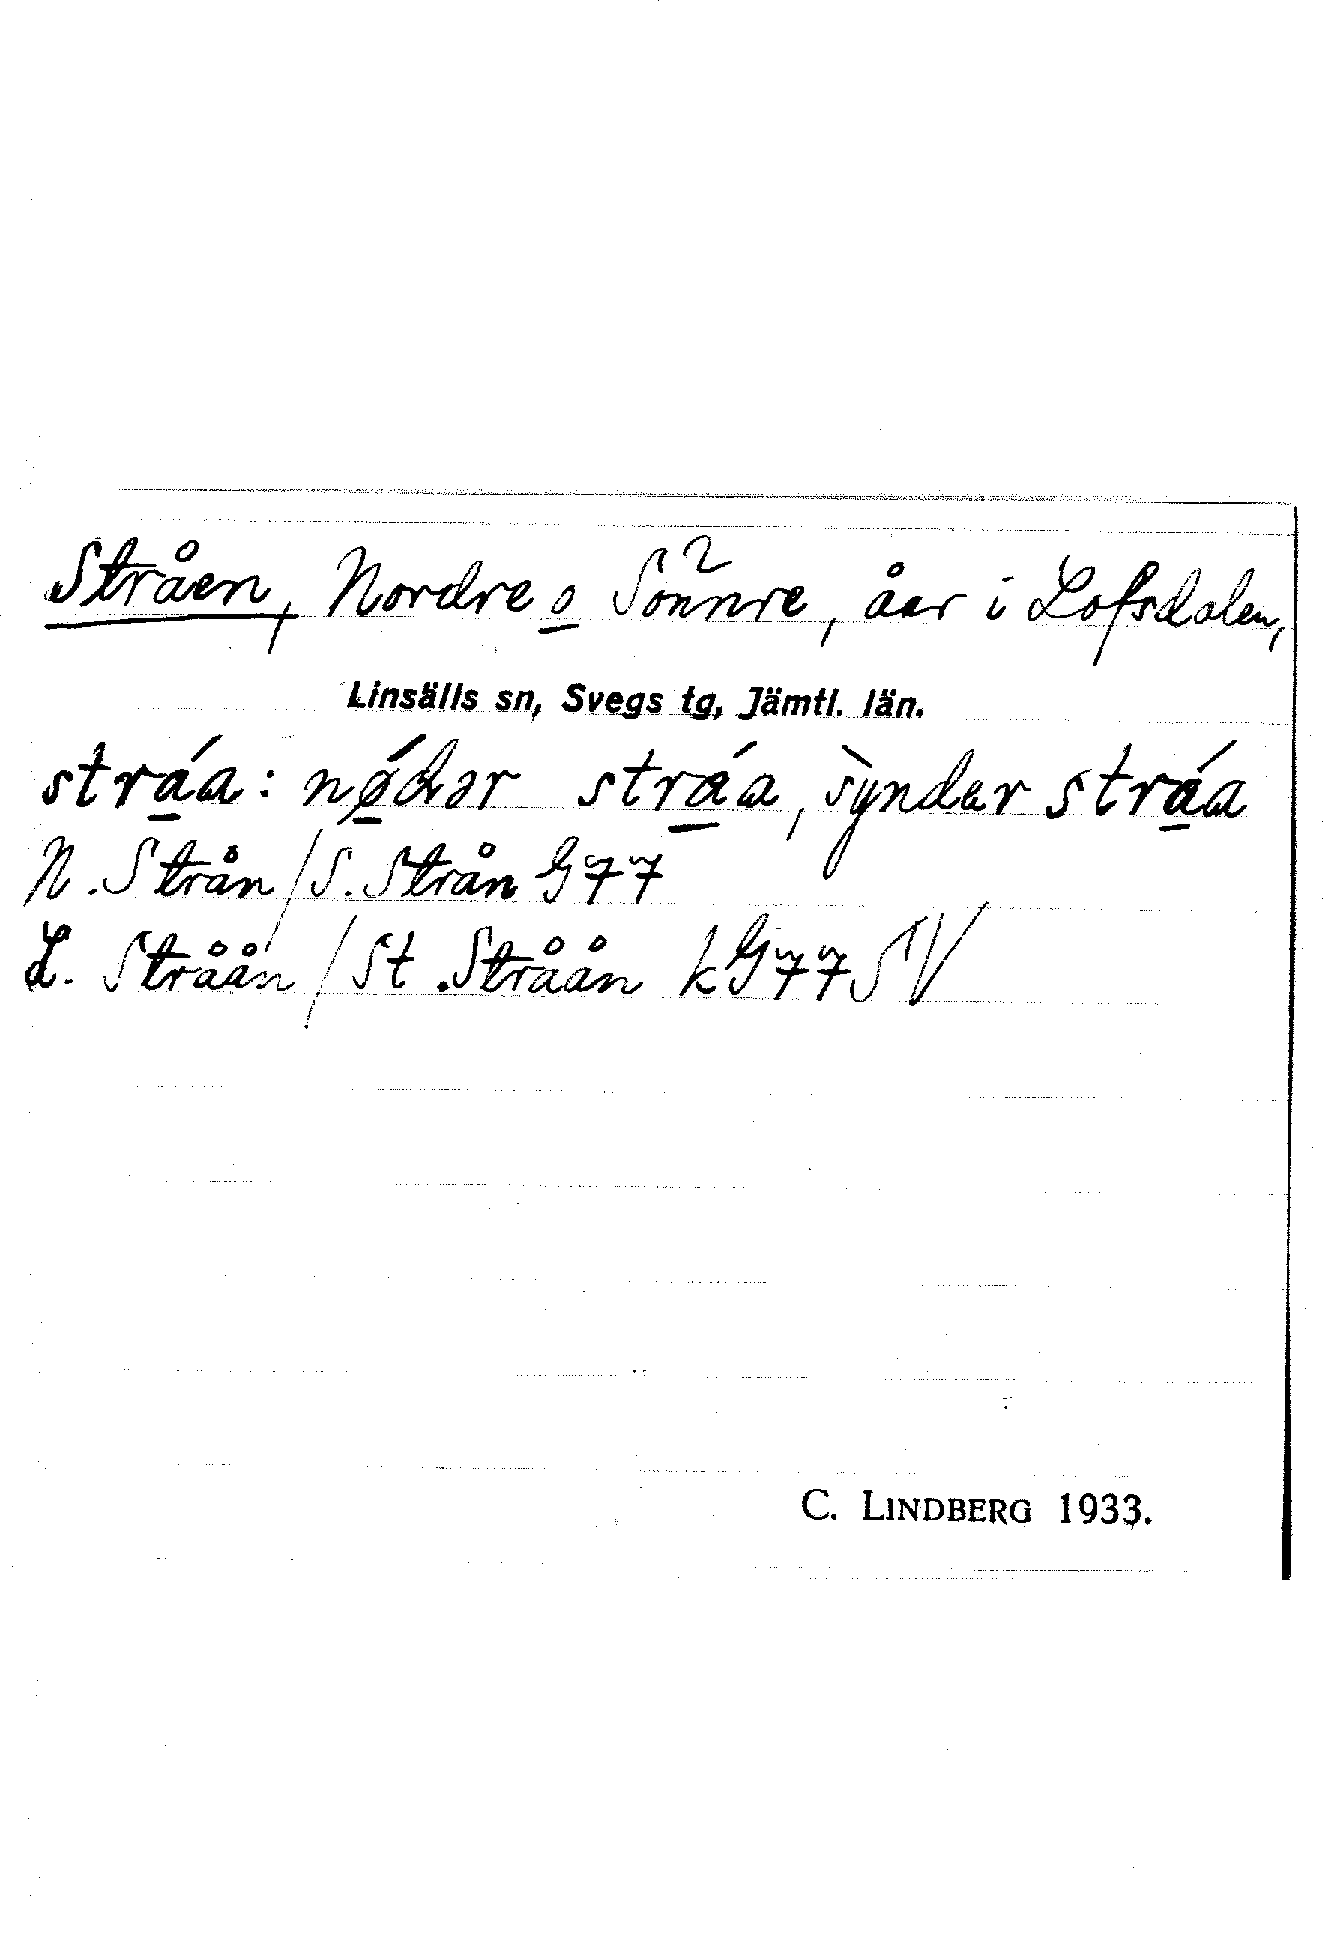 Stråen, Nordre o Sönnre, åar i Lofsdalen,
Linsälls sn, Svegs tg, Jämtl. län.
stráa: nǿdər stráa, syndər stráa
N. Strån / S. Strån G77
L. Stråån / St. Stråån kG77SV
C. LINDBERG 1933.